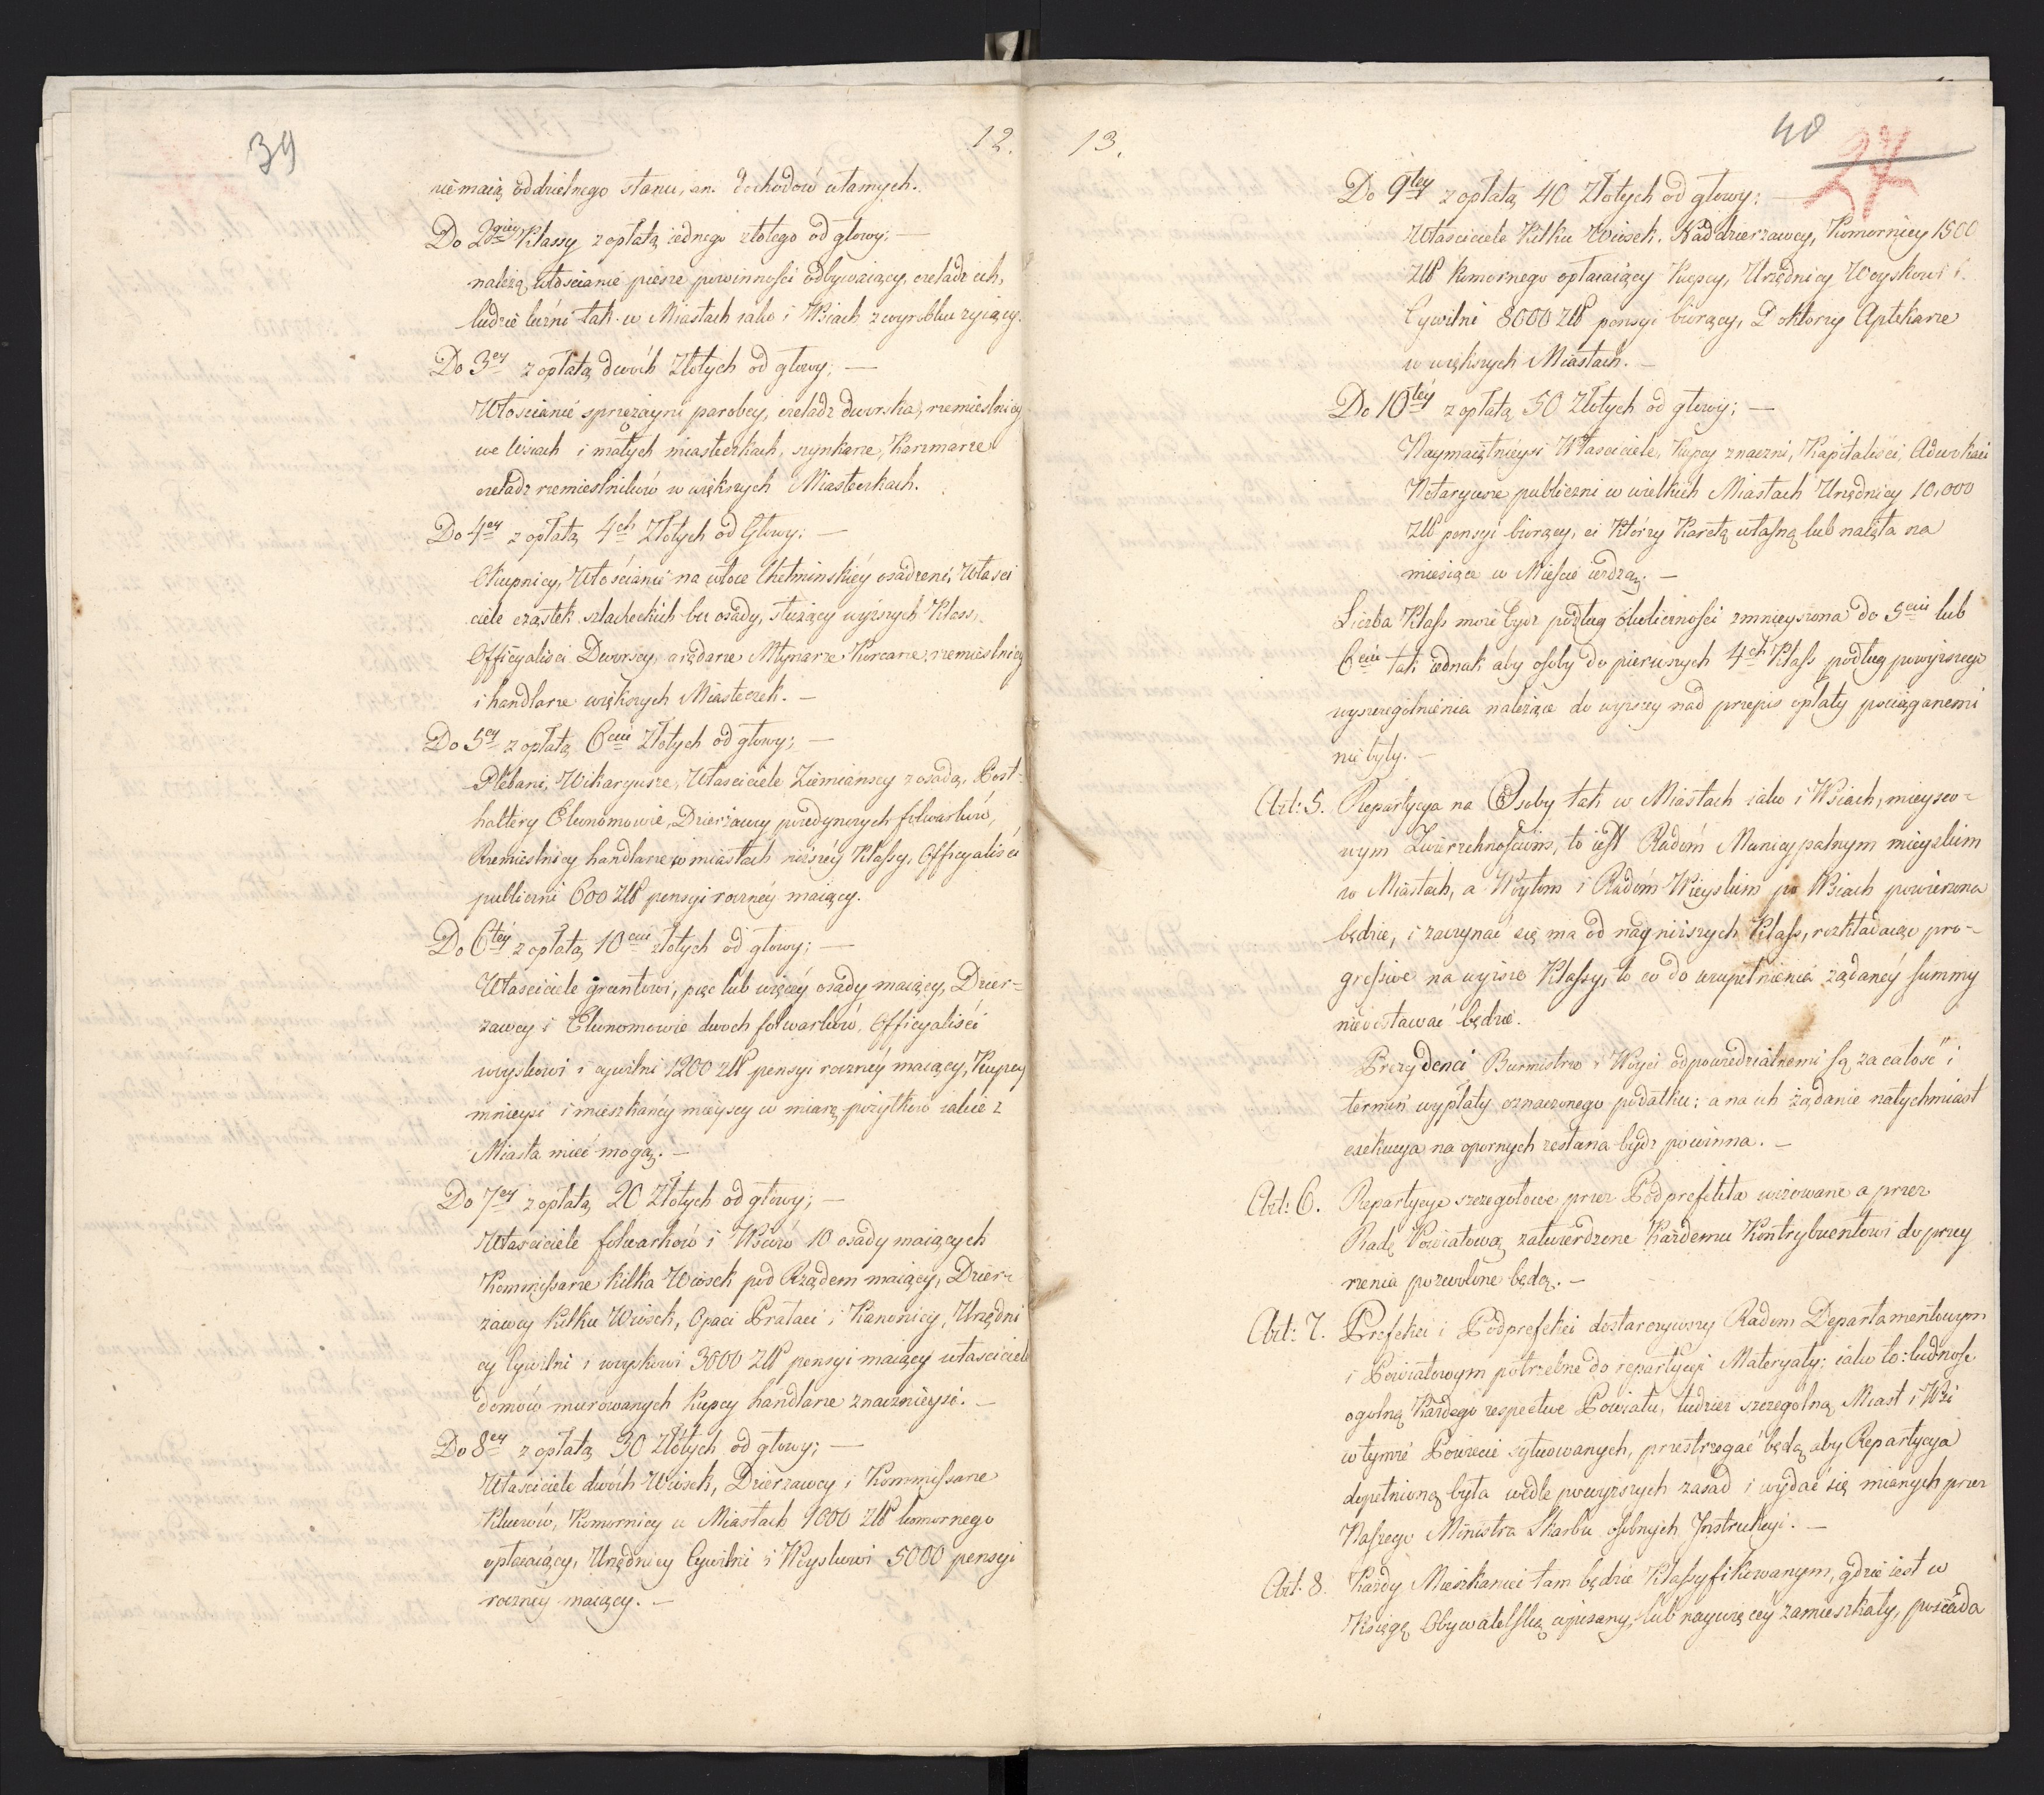 39
12.
niemaią oddzielnego stanu, an. dochodów własnych.
Do 2giey Klassy z opłatą iednego złotego od głowy; —
należą włościanie piesze powinności odbywaiący, czeladź ich,
ludzie luźni tak w Miastach iako i Wsiach z wyrobku żyiący.
Do 3ey z opłatą dwóch Złotych od głowy; —
Włościanie sprzężayni parobcy, czeladź dworska, rzemieslnicy
we Wsiach i małych miasteczkach, szynkarze, Karczmarze
czeladź rzemieslników w większych Miasteczkach.
Do 4ey z opłatą 4ch Złotych od Głowy; —
Okupnicy, Włościanie na włoce Chełminskiéy osadzeni, Właści
ciele cząstek szlacheckich bez osady, służący wyższych Klass,
Officyaliści Dworscy, arędarze Młynarze Korczarze, rzemieslnicy
i handlarze większych Miasteczek. —
Do 5ey z opłatą 6ciu Złotych od głowy; —
Plebani, Wikaryusze, Właściciele Ziemianscy z osadą, Post-
haltery Ekonomowie, Dzierżawcy poiedynczych folwarków,
Rzemieslnicy handlarze w miastach niższéy Klassy, Officyaliści
publiczni 600 Złł pensyi roczney maiący.
Do 6téy z opłatą 10ciu złotych od głowy; —
Właściciele gruntowi, pięć lub więcéy osady maiący, Dzier=
żawcy i Ekonomowie dwoch folwarków, Officyaliści
woyskowi i cywilni 1200 złł pensyi roczney maiący, Kupcy
mnieysi i mieszkańcy mieyscy w miarę pożytków iakie z
Miasta mieć mogą. —
Do 7ey z opłatą 20 Złotych od głowy; —
Właściciele folwarków i Wsiów 10 osady maiących
Kommissarze kilka Wiosek pod Rządem maiący, Dzier-
żawcy kilku Wiosek, Opaci Prałaci i Kanonicy, Urzędni
cy Cywilni i woyskowi 3000 Złł pensyi maiący właściciele
domów murowanych Kupcy handlarze znacznieysi. —
Do 8ey z opłatą 30 Złotych od głowy; —
Właściciele dwóch Wiosek, Dzierżawcy i Kommissarze
Kluczów, Komornicy w Miastach 1000 Złł komornego
opłacaiący, Urzędnicy Cywilni i Woyskowi 5000 pensyi
roczney maiący. —
13.
40
27
Do 9tey z opłatą 40 Złotych od głowy; —
Właściciele Kilku Wiosek. Naddzierżawcy, Komornicy 1500
Złł komornego opłacaiący Kupcy, Urzędnicy Woyskowi i
Cywilni 8000 Złł pensyi biorący, Doktorzy Aptekarze
w większych Miastach. —
Do 10téy z opłatą 50 Złotych od głowy; —
Naymaiętnieysi Właściciele, Kupcy znaczni, Kapitaliści, Adwokaci
Notaryusze publiczni w wielkich Miastach Urzędnicy 10,000
Złł pensyi biorący, ci którzy Karetą własną lub naiętą na
miesiące w Mieście ieżdżą. —
Liczba Klass może bydź podług okoliczności zmnieyszona do 5ciu lub
6ciu tak iednak aby osoby do pierwszych 4ch Klass podług powyższego
wyszczególnienia należące do wyższey nad przepis opłaty pociąganemi
nie były. —
Art: 5. Repartycya na Osoby tak w Miastach iako i Wsiach, mieysco-
wym Zwierzchnościom, to iest Radóm Municypalnym mieyskim
w Miastach, a Woytom i Radóm Wieyskim po Wsiach powierzona
będzie, i zaczynać się ma od nayniższych Klass, rozkładaiąc pro-
gressive na wyższe Klassy, to co do uzupełnienia żądanéy summy
niedostawać będzie.
Prezydenci Burmistrze i Woyci odpowiedzialnemi są za całość i
termin wypłaty oznaczonego podatku; a na ich żądanie natychmiast
exekucya na opornych zesłana bydź powinna. —
Art: 6. Repartycye szczegółowe przez Podprefekta wizowane a przez
Radę Powiatową zatwierdzone Każdemu Kontrybuentowi do przey
rzenia pozwolone będą. —
Art: 7. Prefekci i Podprefekci dostarczywszy Radom Departamentowym
i Powiatowym potrzebne do repartycyi Materyały; iako to: ludność
ogólną Każdego respective Powiatu, tudzież szczególną Miast i Wsi
w tymże Powiecie sytuowanych, przestrzegać będą aby Repartycya
dopełnioną była wedle powyższych zasad i wydać się mianych przez
Naszego Ministra Skarbu osobnych Instrukcyi. —
Art: 8. Każdy Mieszkaniec tam będzie Klassyfikowanym, gdzie iest w
Księgę Obywatelską wpisany, lub naywięcey zamieszkały, posiada